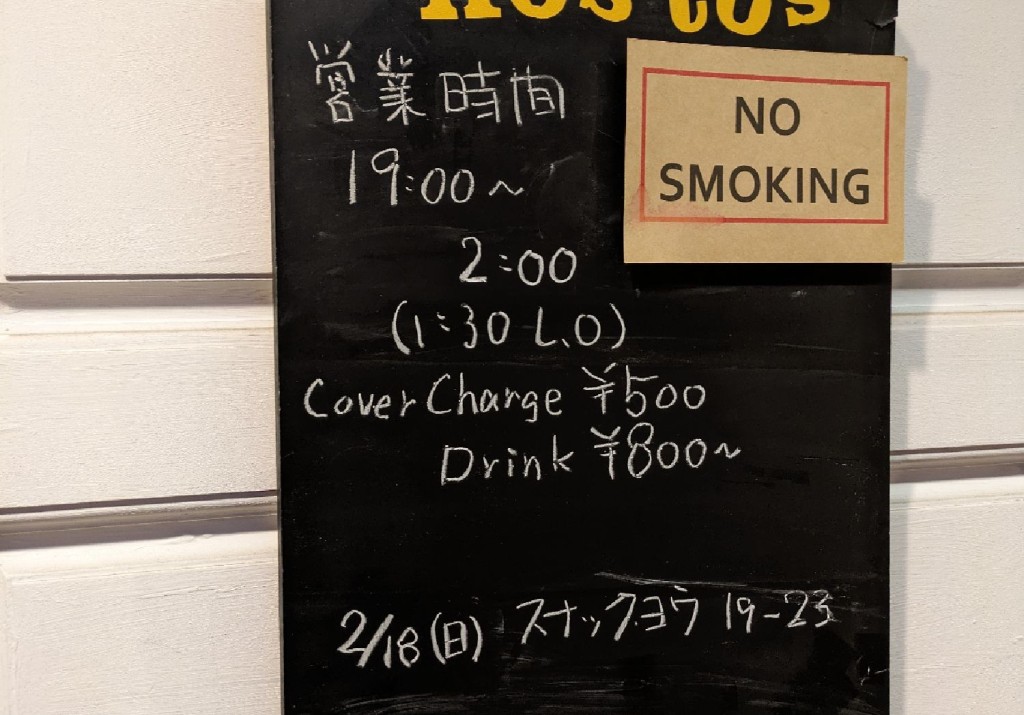 営業時間
NO
SMOKING
19:00~
2:00
(1:30 L.O)
Cover Charge ¥500
Drink ¥800~
2/18(日) スナックヨウ 19-23